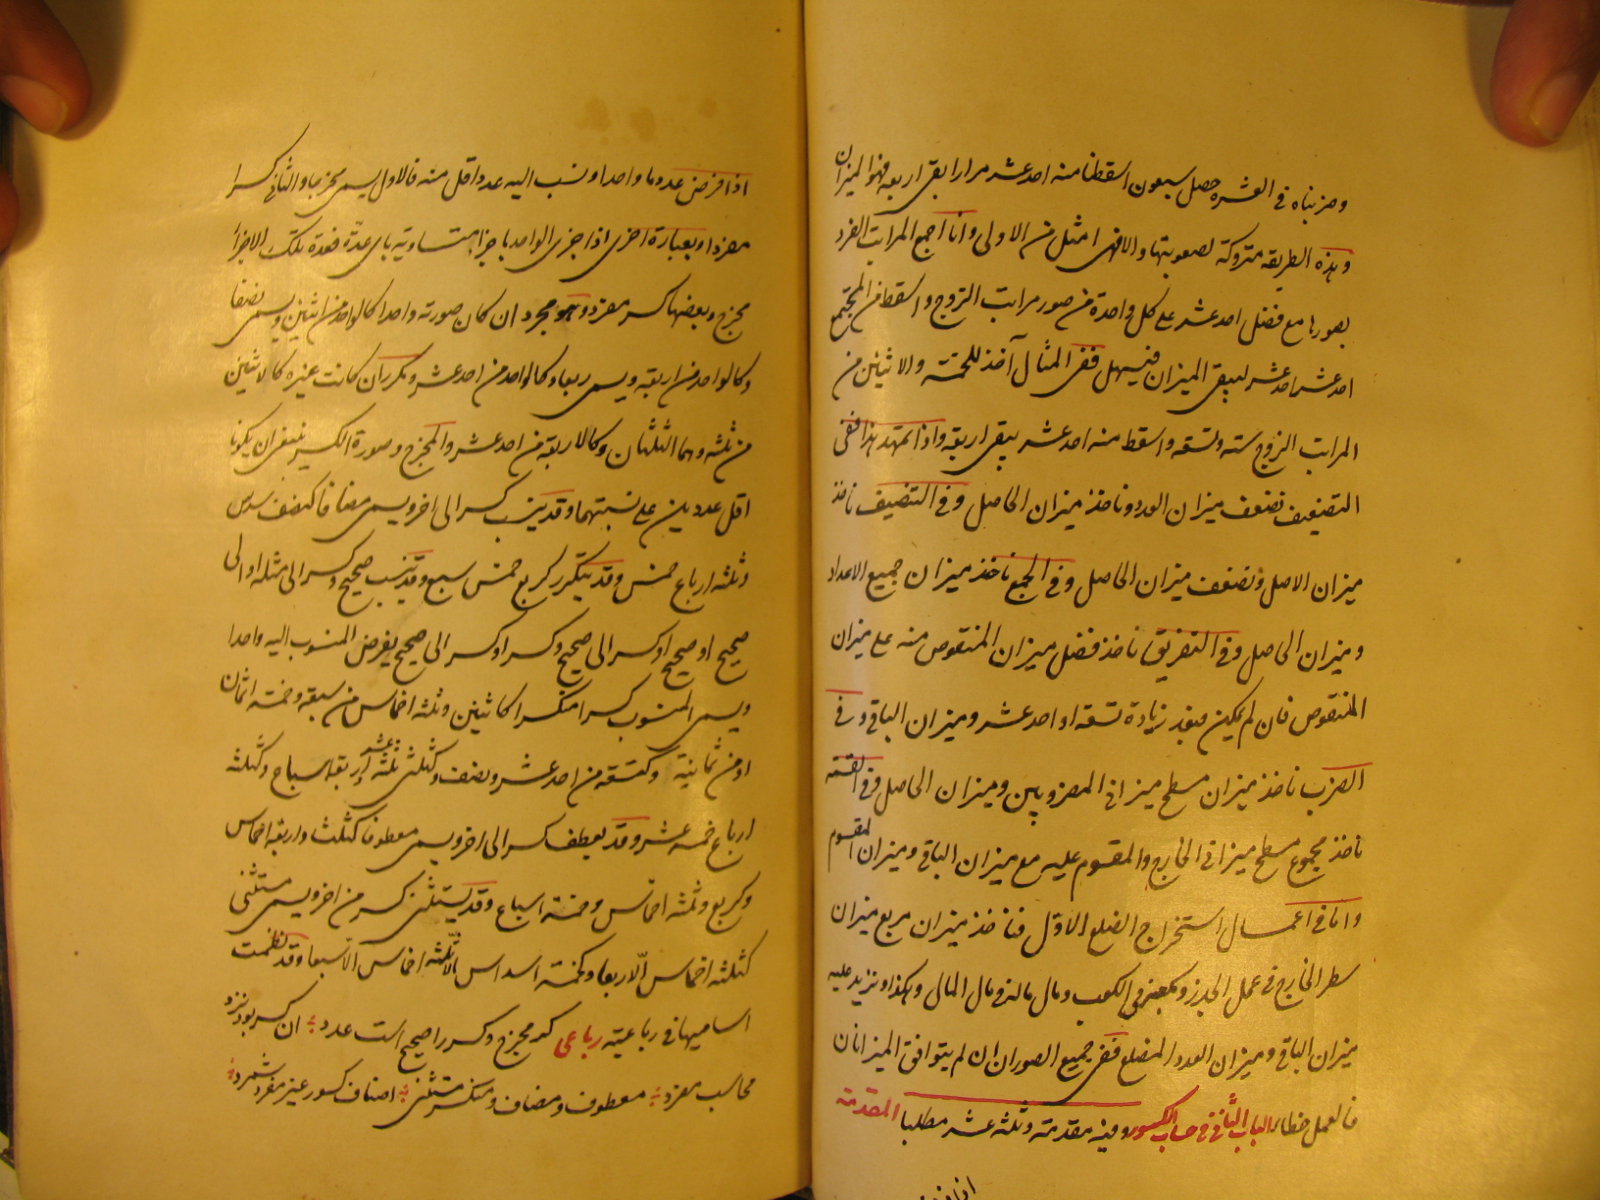 وضربناه فى العشره حصل سبعون اسقطنا منه احد عشر مرارا بقى اربعه فهو الميزان
وهذه الطريقه متروكة لصعوبتها والافهى امثل من الاولى وانا اجمع المراتب الفرد
بصورها مع فضل احد عشر على كل واحدة من صور مراتب الزوج واسقط من المجتمع
احد عشر احد عشر ليبقى الميزان فيسهل ففى المثال آخذ للخمسة والاثنين من
المراتب الزوج سته وتسعه واسقط منه احد عشر يبقى اربعه واذا تمهد هذا ففى
التضعيف نضعف ميزان العدد وناخذ ميزان الحاصل وفى التنصيف ناخذ
ميزان الاصل ونضعف ميزان الحاصل وفى الجمع ناخذ ميزان جميع الاعداد
وميزان الحاصل وفى التفريق ناخذ فضل ميزان المنقوص منه على ميزان
المنقوص فان لم يمكن فبعد زيادة تسعه او احد عشر وميزان الباقى وفى
الضرب ناخذ ميزان مسطح ميزانى المضروبين وميزان الحاصل وفى القسمه
ناخذ مجموع مسطح ميزانى الخارج والمقسوم عليه مع ميزان الباقى وميزان المقسوم
وانا فى اعمال استخراج الضلع الاول فناخذ ميزان مربع ميزان
سطر الخارج فى عمل الجذر ومكعبه فى الكعب ومال ماله فى مال المال وهكذا ونزيد عليه
ميزان الباقى وميزان العدد المضلع ففى جميع الصور ان لم يتوافق الميزانان
فالعمل خطا الباب الثانى فى حساب الكسور وفيه مقدمته وثلثه عشر مطلبا المقدمة
اذا فرض
اذا فرض عدد ما واحدا ونسب اليه عدد اقل منه فالاول يسمى مخرجا والثانى كسرا
مفردا وبعبارة اخرى اذا جزى الواحد باجزا متساويه باى عدة فعدة تلك الاجزا
مخرج وبعضها كسر مفرد وهو مجرد ان كان صورته واحدا كالواحد من اثنين ويسمى نصفا
وكالواحد من اربعة ويسمى ربعا وكالواحد من احد عشر ومكرر ان كانت غيره كالاثنين
من ثلثه وهما الثلثان وكالاربعة من احد عشر والمخرج وصورة الكسر ينبغى ان يكونا
اقل عددين على نسبتهما وقد ينسب كسر الى اخر ويسمى مضافا كنصف سدس
وثلثه ارباع خمس وقد يتكرر كربع خمس سبع وقد ينسب صحيح وكسر الى مثله او الى
صحيح او صحيح او كسر الى صحيح وكسر او كسر الى صحيح يفرض المنسوب اليه واحدا
ويسمى المنسوب كسرا منكسرا كاثنين وثلثه اخماس من سبعه وخمسه اثمان
او من ثمانية وكتسعه من احد عشر ونصف وكثلث ثلثه عشر اربعة اسباع وكثلثه
ارباع خمسه عشر وقد يعطف كسر الى اخر ويسمى معطوفا كثلث واربعة اخماس
وكربع وثلثه اخماس وخمسة اسباع وقد يستثنى كسر من اخر ويسمى مستثنى
كثلثه اخماس الا ربعا وكخمسة اسداس الا ثلثه اخماس الا سبعا وقد نظمت
اساميها فى رباعية رباعى كسر مخرج وكسر را صحيح است عدد ان كسر بود نزد
محاسب مفرد معطوف ومضاف ومنكسر مستثنى اصناف كسور غير مفرد شمرد